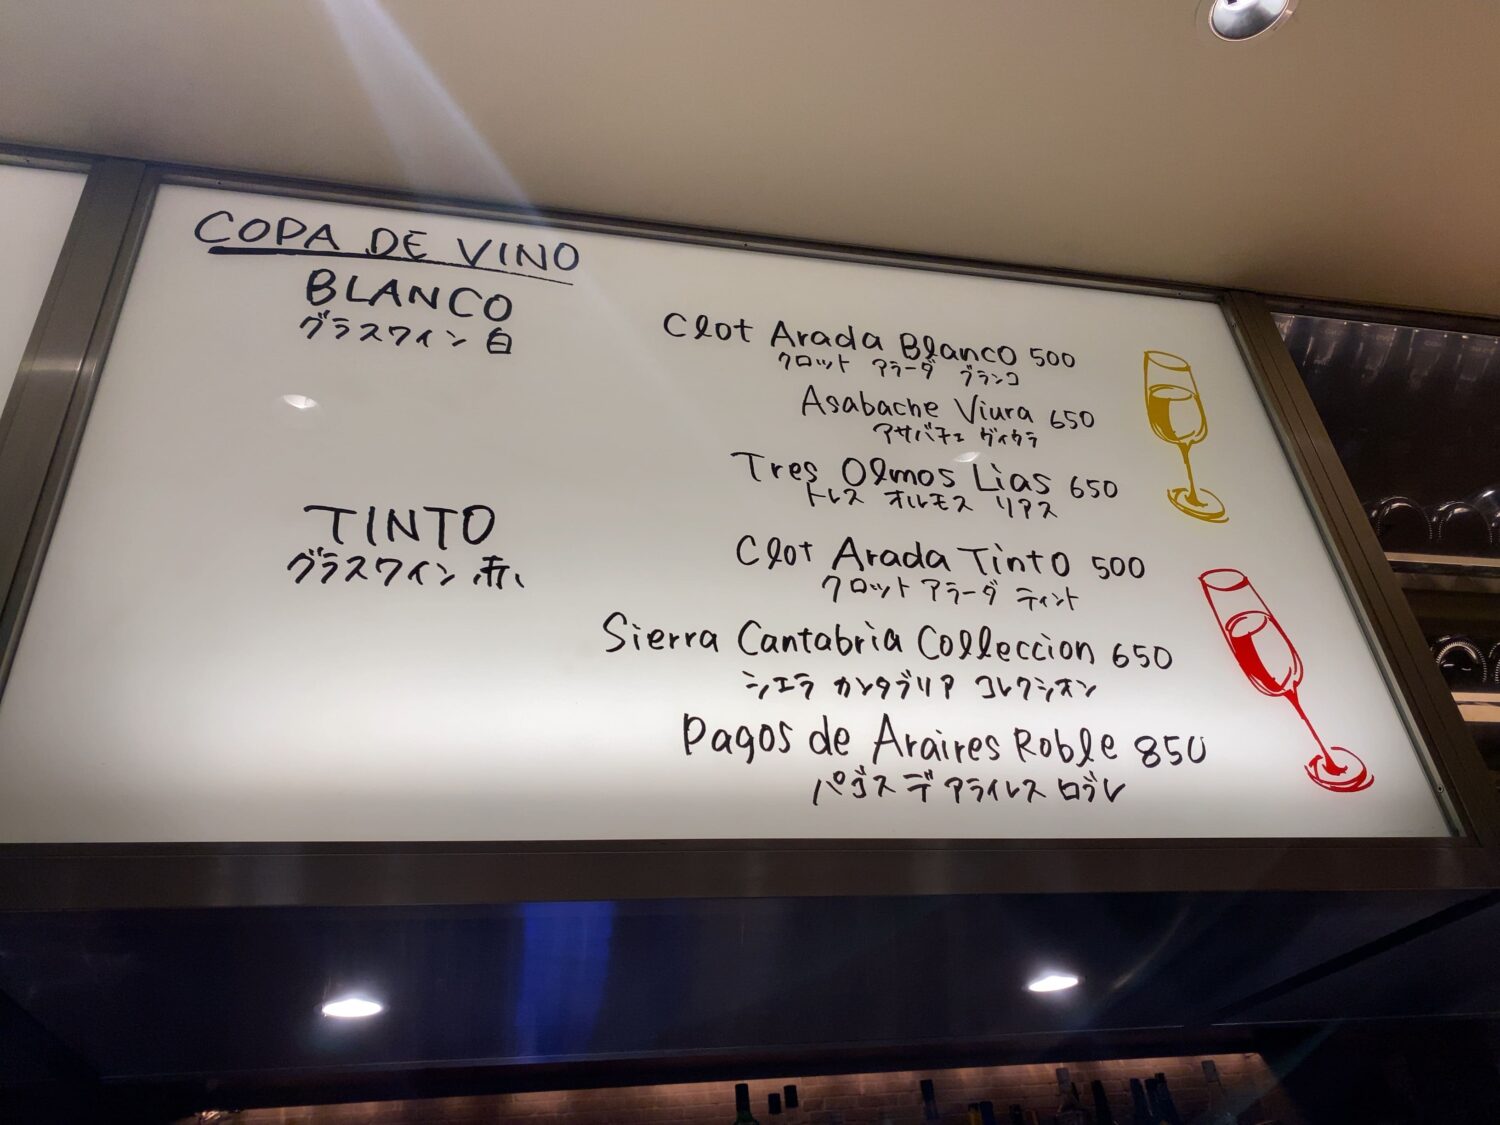 COPA DE VINO
BLANCO
グラスワイン 白
Clot Arada Blanco 500
クロット アラーダ ブランコ
Asabache Viura 650
アサバチェ ヴィウラ
Tres Olmos Lias 650
トレス オルモス リアス
TINTO
グラスワイン 赤
Clot Arada Tinto 500
クロット アラーダ ティント
Sierra Cantabria Colleccion 650
シエラ カンタブリア コレクシオン
Pagos de Araires Roble 850
パゴス デ アライレス ロブレ